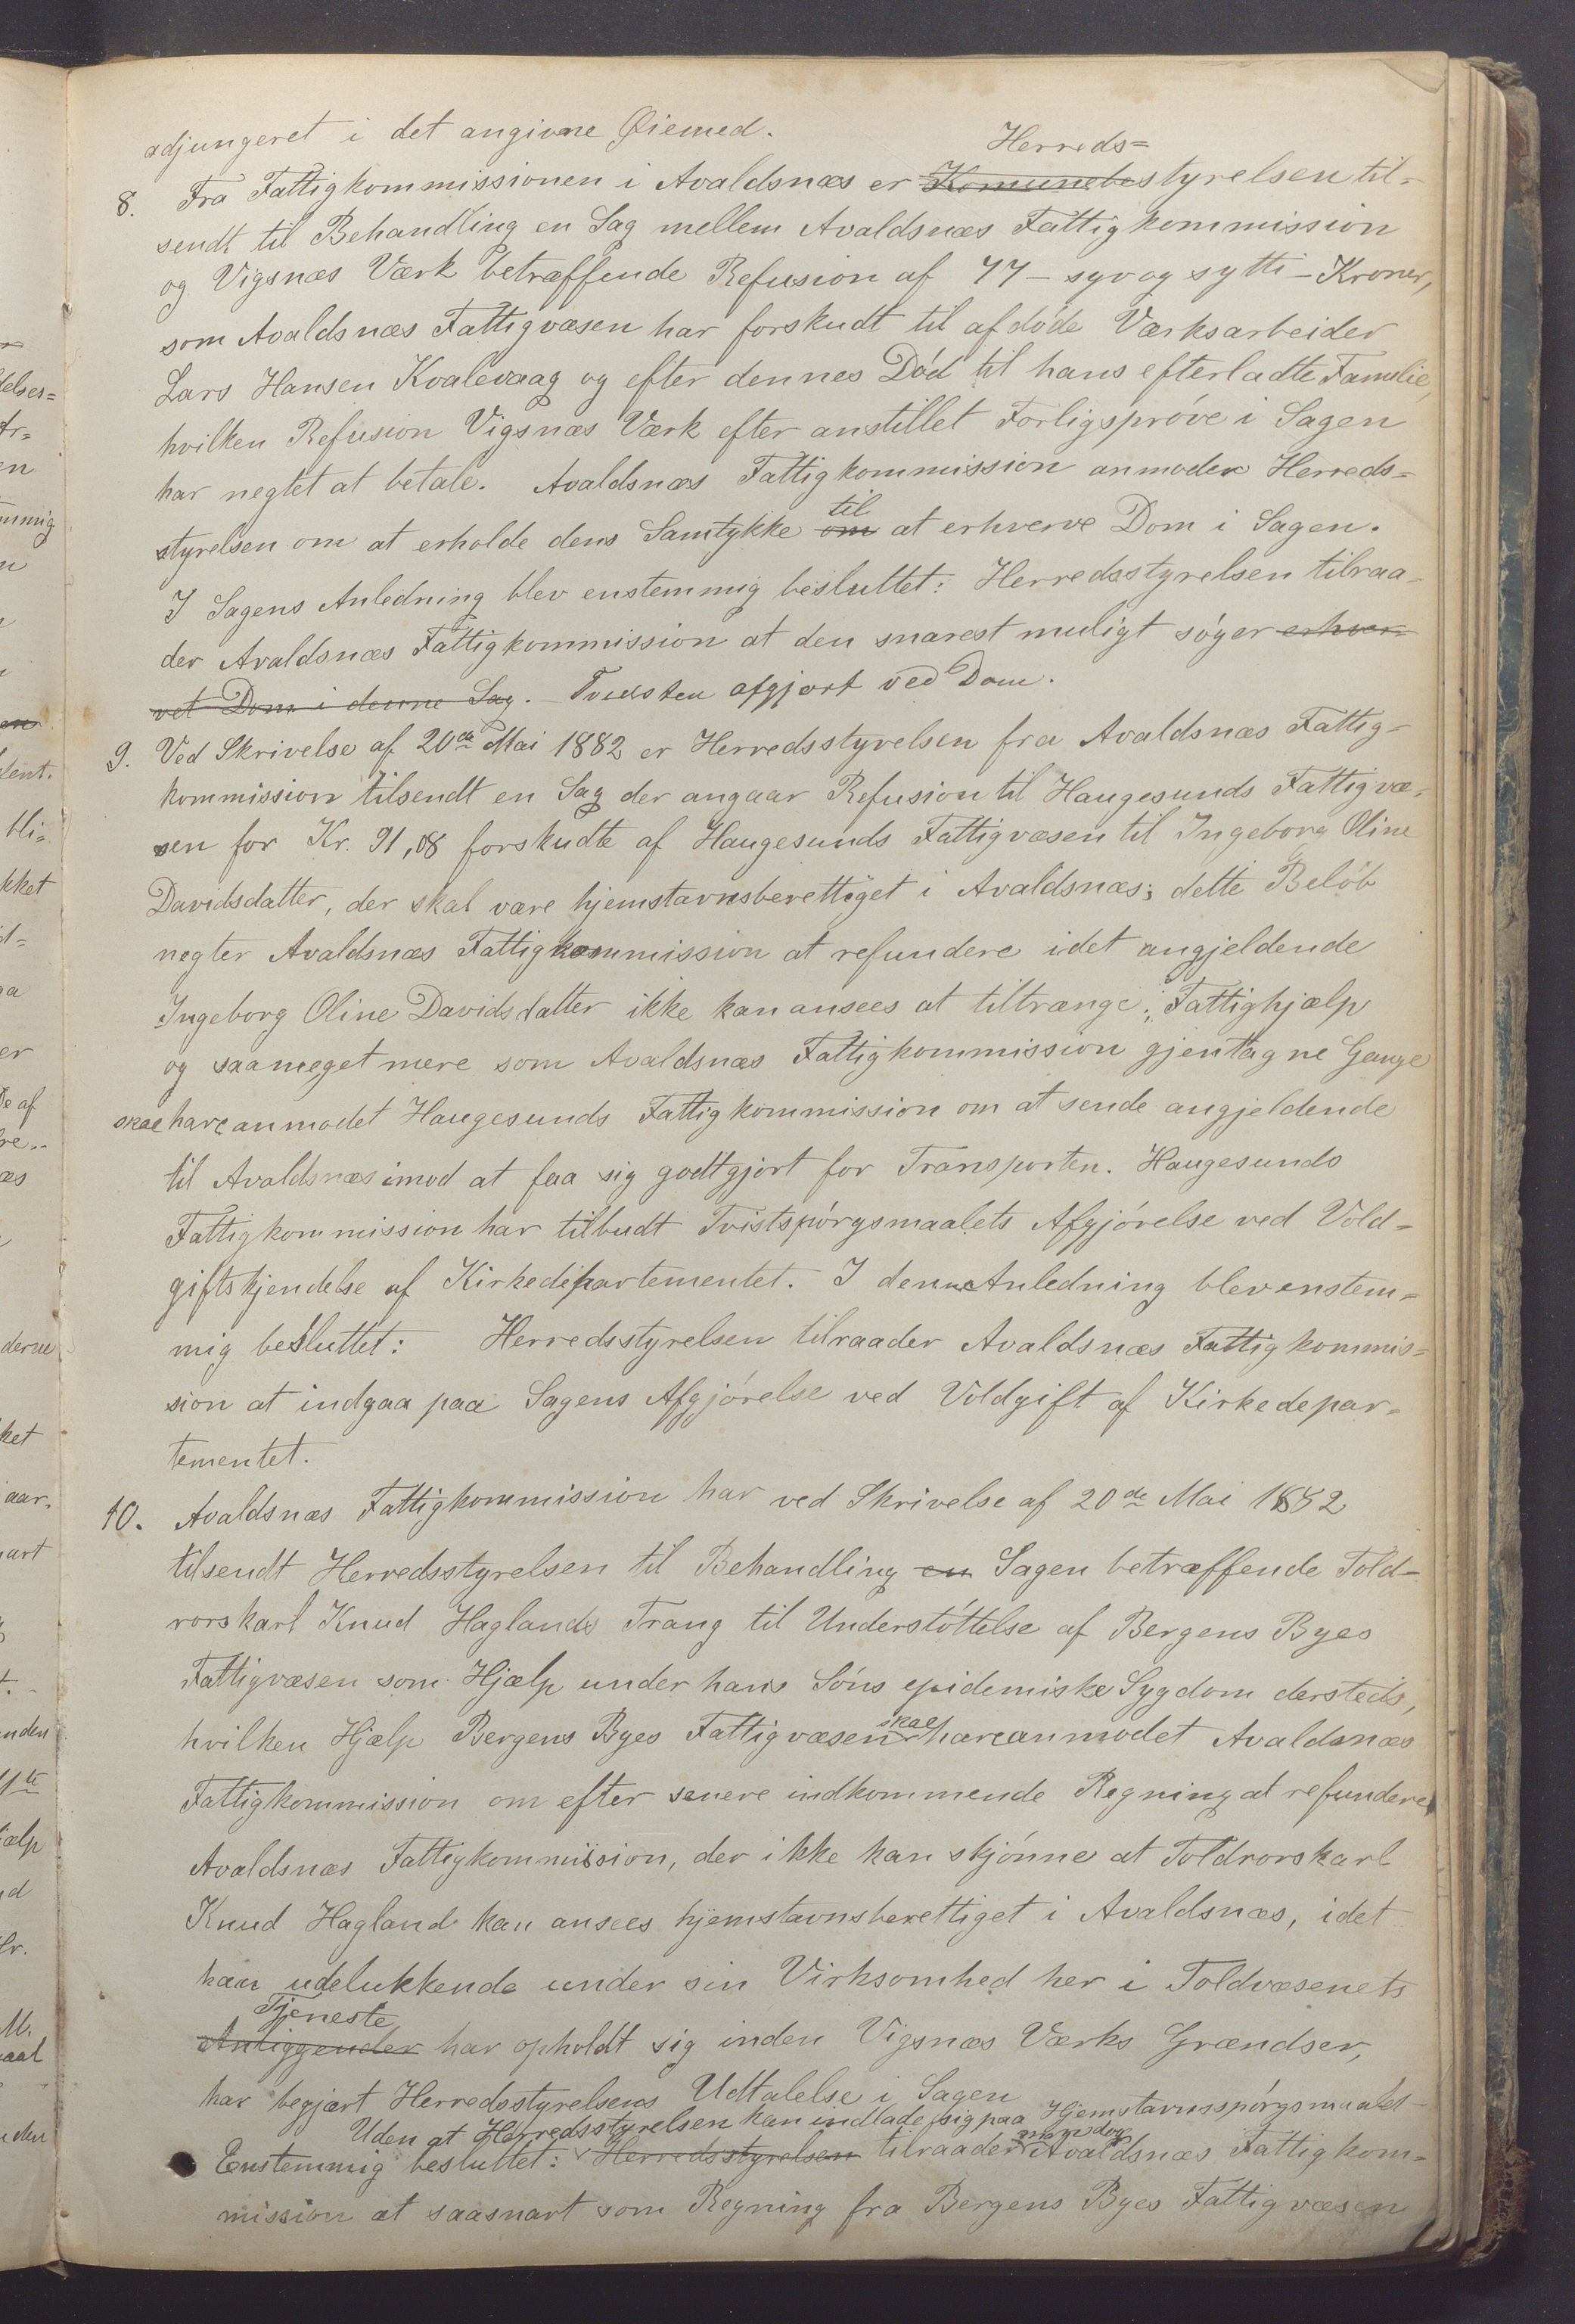 adjungeret i det angivne Øiemed.
Herreds=
8. Fra Fattigkommissionen i Avaldsnæs er Komunebestyrelsen til-
sendt til Behandling en Sag mellem Avaldsnæs Fattigkommission
og Vigsnæs Værk betræffende Refusion af 77 - syv og sytti - Kroner,
som Avaldsnæs Fattigvæsen har forskudt til afdøde Værksarbeider
Lars Hansen Kvalevaag og efter dennes Død til hans efterladte Familie,
hvilken Refusion Vigsnæs Værk efter anstillet Forligsprøve i Sagen
har negtet at betale. Avaldsnæs Fattigkommission anmoder Herreds=
til
styrelsen om at erholde dens Samtykke om at erhverve Dom i Sagen.
I Sagens Anledning blev enstemmig besluttet: Herredsstyrelsen tilraa-
der Avaldsnæs Fattigkommission at den snarest muligt søger erhver-
vet Dom i denne Sag. - Tvisten afgjort ved Dom.
9. Ved Skrivelse af 20de Mai 1882 er Herredsstyrelsen fra Avaldsnæs Fattig-
kommission tilsendt en Sag der angaar Refusion til Haugesunds Fattigvæ-
sen for Kr. 91,08 forskudte af Haugesunds Fattigvæsen til Ingeborg Oline
Davidsdatter, der skal være hjemstavnsberettiget i Avaldsnæs; dette Beløb
negter Avaldsnæs Fattigkommission at refundere idet angjeldende
Ingeborg Oline Davidsdatter ikke kan ansees at tiltrænge Fattighjælp
og saameget mere som Avaldsnæs Fattigkommission gjentagne Gange
skal have anmodet Haugesunds Fattigkommission om at sende angjeldende
til Avaldsnæs imod at faa sig godtgjort for Transporten. Haugesunds
Fattigkommission har tilbudt Tvistspørgsmaalets Afgjørelse ved Vold-
giftskjendelse af Kirkedepartementet. I denne Anledning blev enstem-
mig besluttet: Herredsstyrelsen tilraader Avaldsnæs Fattigkommis=
sion at indgaa paa Sagens Afgjørelse ved Voldgift af Kirkedepar-
tementet.
10. Avaldsnæs Fattigkommission har ved Skrivelse af 20de Mai 1882
tilsendt Herredsstyrelsen til Behandling en Sagen betræffende Told-
rorskarl Knud Haglands Trang til Understøttelse af Bergens Byes
Fattigvæsen som Hjælp under hans Søns epidemiske Sygdom dersteds,
skal
hvilken Hjælp Bergens Byes Fattigvæsen have anmodet Avaldsnæs
Fattigkommission om efter senere indkommende Regning at refundere
Avaldsnæs Fattigkommission, der ikke kan skjønne at Toldrorskarl
Knud Hagland kan ansees hjemstavnsberettiget i Avaldsnæs, idet
han udelukkende under sin Virksomhed her i Toldvæsenets
Tjeneste
Anliggender har opholdt sig inden Vigsnæs Værks Grændser,
har begjært Herredsstyrelsens Udtalelse i Sagen
Uden at Herredsstyrelsen kan indlade sig paa Hjemstavnsspørgsmaalet
man dog
Enstemmig besluttet: Herredsstyrelsen tilraader Avaldsnæs Fattigkom=
mission at saasnart som Regning fra Bergens Byes Fattigvæsen